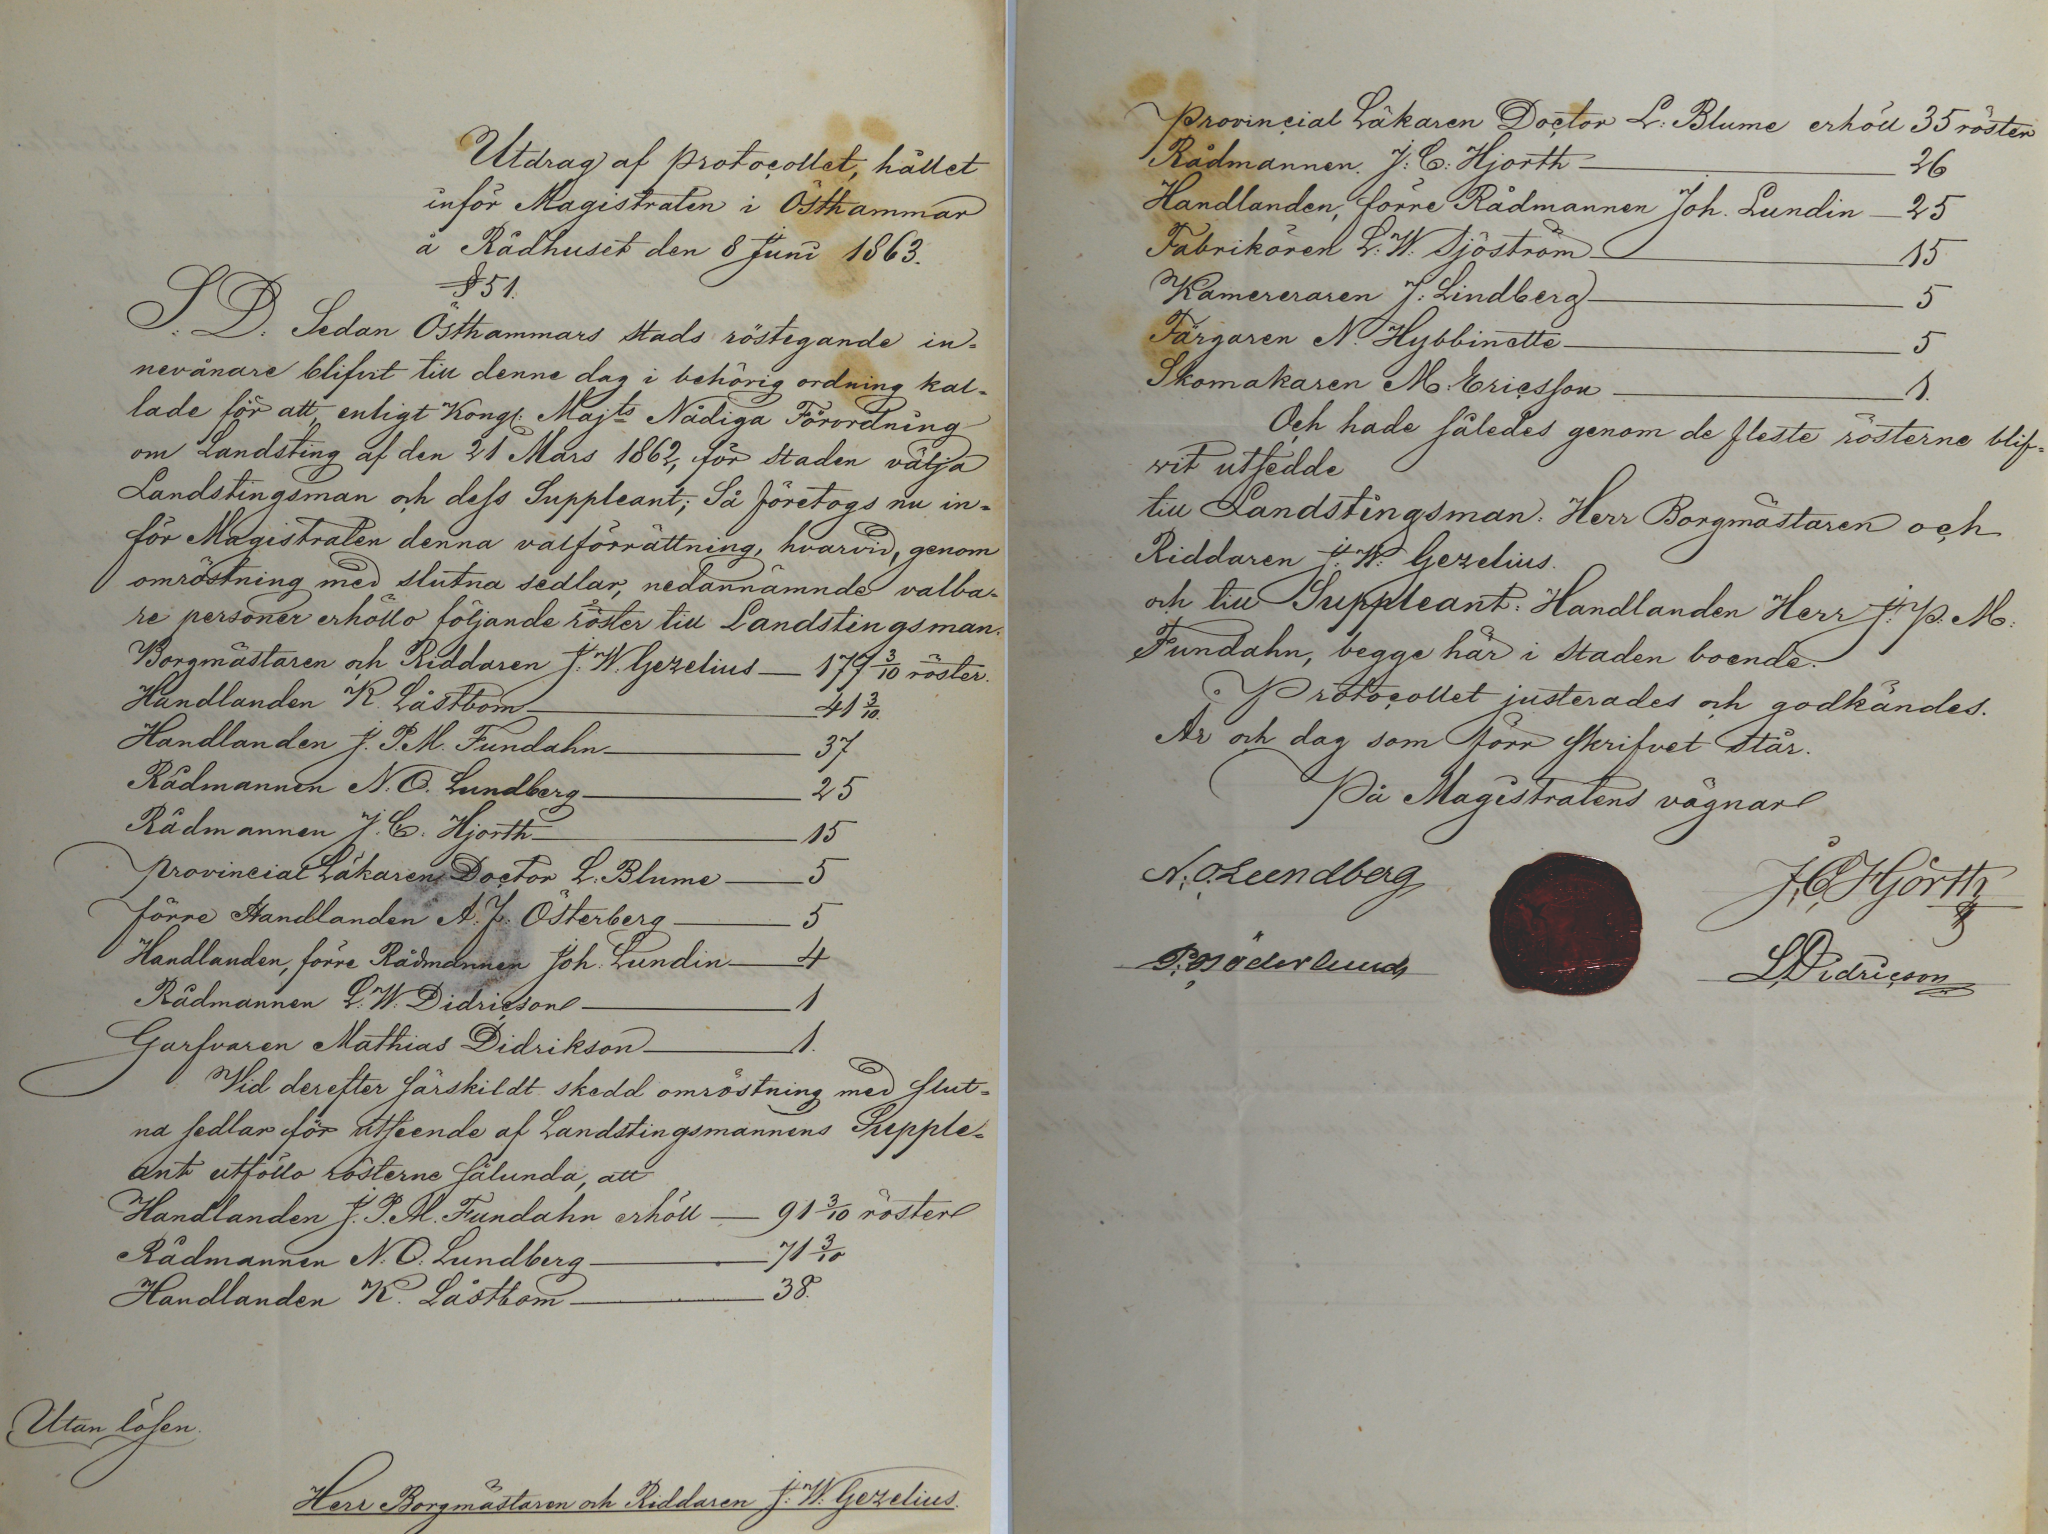 Utdrag af protocollet, hållet
inför Magistraten i Östhammar
å Rådhuset den 8 Juni 1863.
§ 51.
S. D. Sedan Östhammars stads röstegande in-
nevånare blifvit till denne dag i behörig ordning kal-
lade för att, enligt Kongl. Majts Nådiga Förordning
om Landsting af den 21 Mars 1862, för staden välja
Landstingsman och dess Suppleant; Så företogs nu in-
för Magistraten denna valförrättning, hvarvid, genom
omröstning med slutna sedlar, nedannämnde valba-
re personer erhöllo följande röster till Landstingsman.
Borgmästaren och Riddaren J. W. Gezelius — 179 3/10 röster.
Handlanden K. Låstbom — 41 3/10.
Handlanden J. P. M. Fundahn — 37
Rådmannen N. O. Lundberg — 25
Rådmannen J. C. Hjorth — 15
Provincial Läkaren Doctor L. Blume — 5
förre Handlanden A. J. Österberg — 5
Handlanden, förre Rådmannen Joh. Lundin — 4
Rådmannen L. W. Didricson — 1
Garfvaren Mathias Didrikson — 1.
Vid derefter särskildt skedd omröstning med slut-
na sedlar för utseende af Landstingsmannens Supple-
ant utföllo rösterne sålunda, att
Handlanden J. P. M. Fundahn erhöll — 91 3/10 röster
Rådmannen N. O. Lundberg — 71 3/10
Handlanden K. Låstbom — 38.
Utan lösen.
Herr Borgmästaren och Riddaren J. W. Gezelius.
Provincial Läkaren Doctor L. Blume erhöll 35 röster
Rådmannen J. C. Hjorth — 26
Handlanden, förre Rådmannen Joh. Lundin — 25
Fabrikören L. W. Sjöström — 15
Kamereraren J. Lindberg — 5
Färgaren N. Hybbinette — 5
Skomakaren M. Ericsson — 1.
Och hade således genom de fleste rösterne blif-
vit utsedde
till Landstingsman: Herr Borgmästaren och
Riddaren J. W. Gezelius.
och till Suppleant: Handlanden Herr J. P. M.
Fundahn, begge här i staden boende.
Protocollet justerades och godkändes.
År och dag som förr skrifvet står.
På Magistratens vägnar
N. O. Lundberg
J. C. Hjorth
P. Söderlund
L. W. Didricson